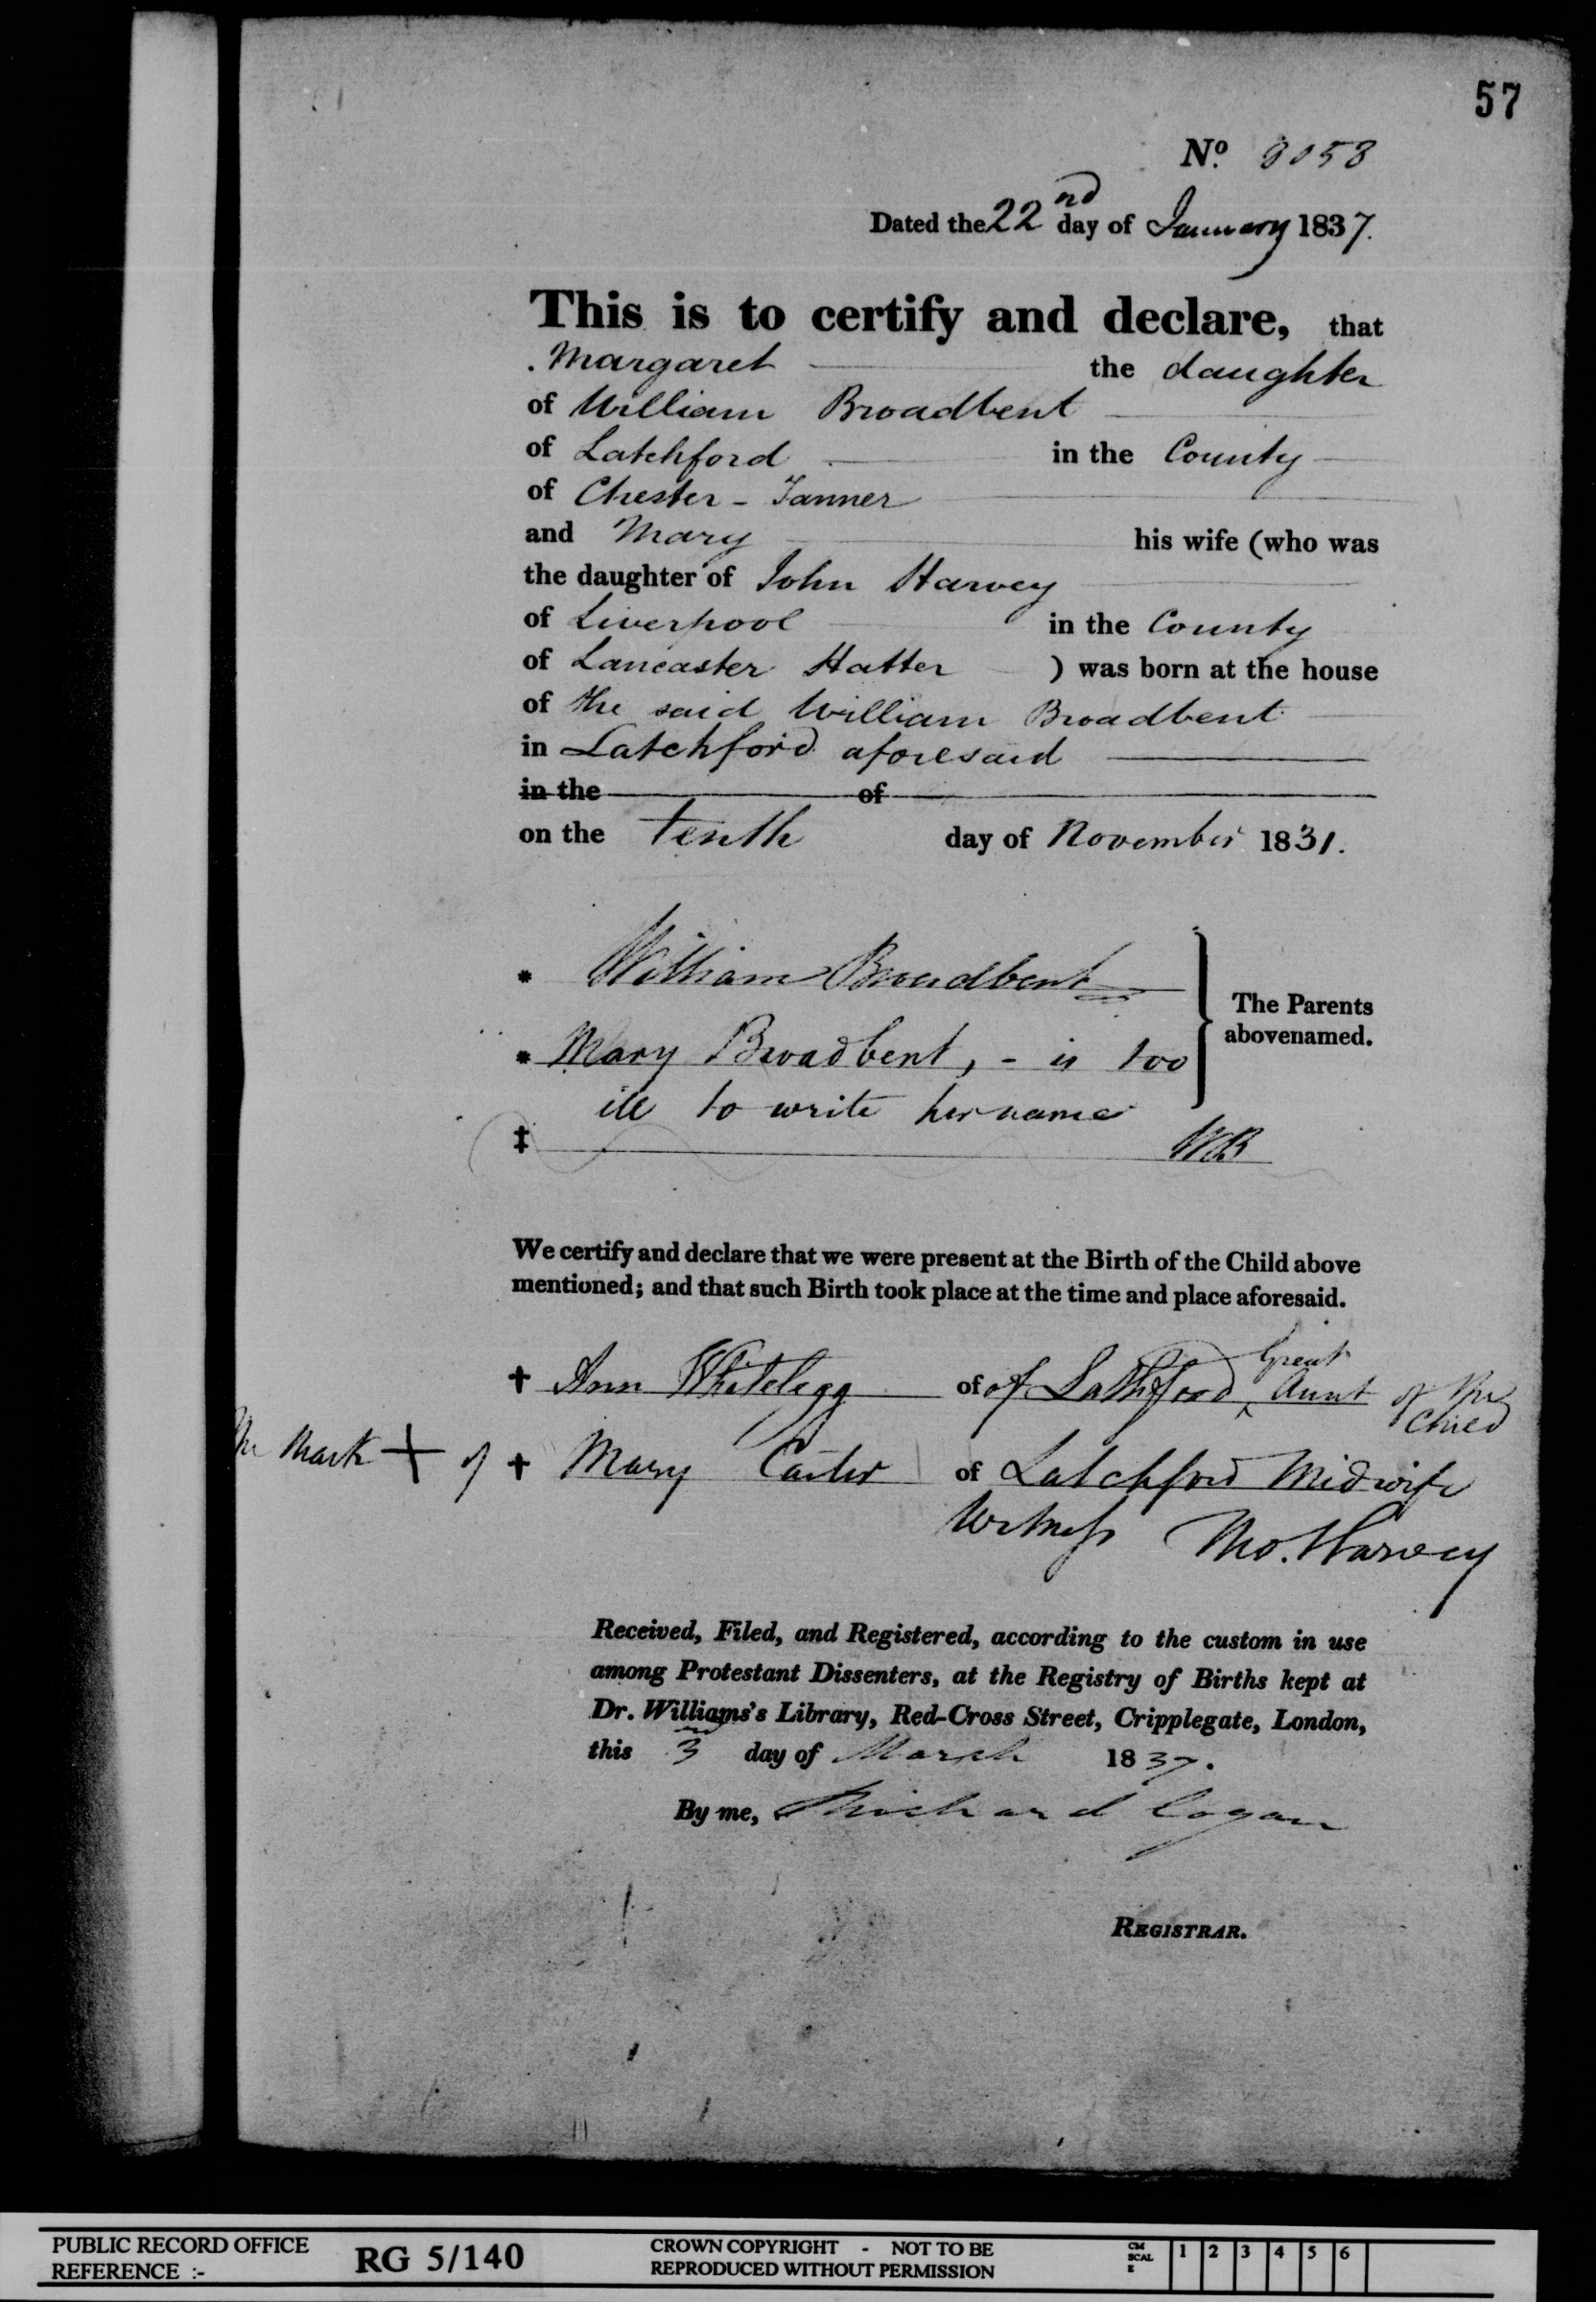 57
No. 3053
Dated the 22nd day of January 1837.
This is to certify and declare, that
Margaret the daughter
of William Broadbent
of Latchford in the County
of Chester - Tanner
and Mary his wife (who was
the daughter of John Harvey
of Liverpool in the County
of Lancaster Hatter ) was born at the house
of the said William Broadbent
in Latchford aforesaid
in the of
on the tenth day of November 1831.
* William Broadbent
* Mary Broadbent, - is too
ill to write her name
‡ WB
The Parents
abovenamed.
We certify and declare that we were present at the Birth of the Child above
mentioned; and that such Birth took place at the time and place aforesaid.
† Ann Whitelegg of of Latchford Great Aunt of the Child
Mark + of † Mary Carter of Latchford Midwife
Witness Tho. Harvey
Received, Filed, and Registered, according to the custom in use
among Protestant Dissenters, at the Registry of Births kept at
Dr. Williams's Library, Red-Cross Street, Cripplegate, London,
this 3 day of March 1837.
By me, Richard Cogan
REGISTRAR.
PUBLIC RECORD OFFICE
REFERENCE :-
RG 5/140
CROWN COPYRIGHT - NOT TO BE
REPRODUCED WITHOUT PERMISSION
CM
SCALE
1 2 3 4 5 6